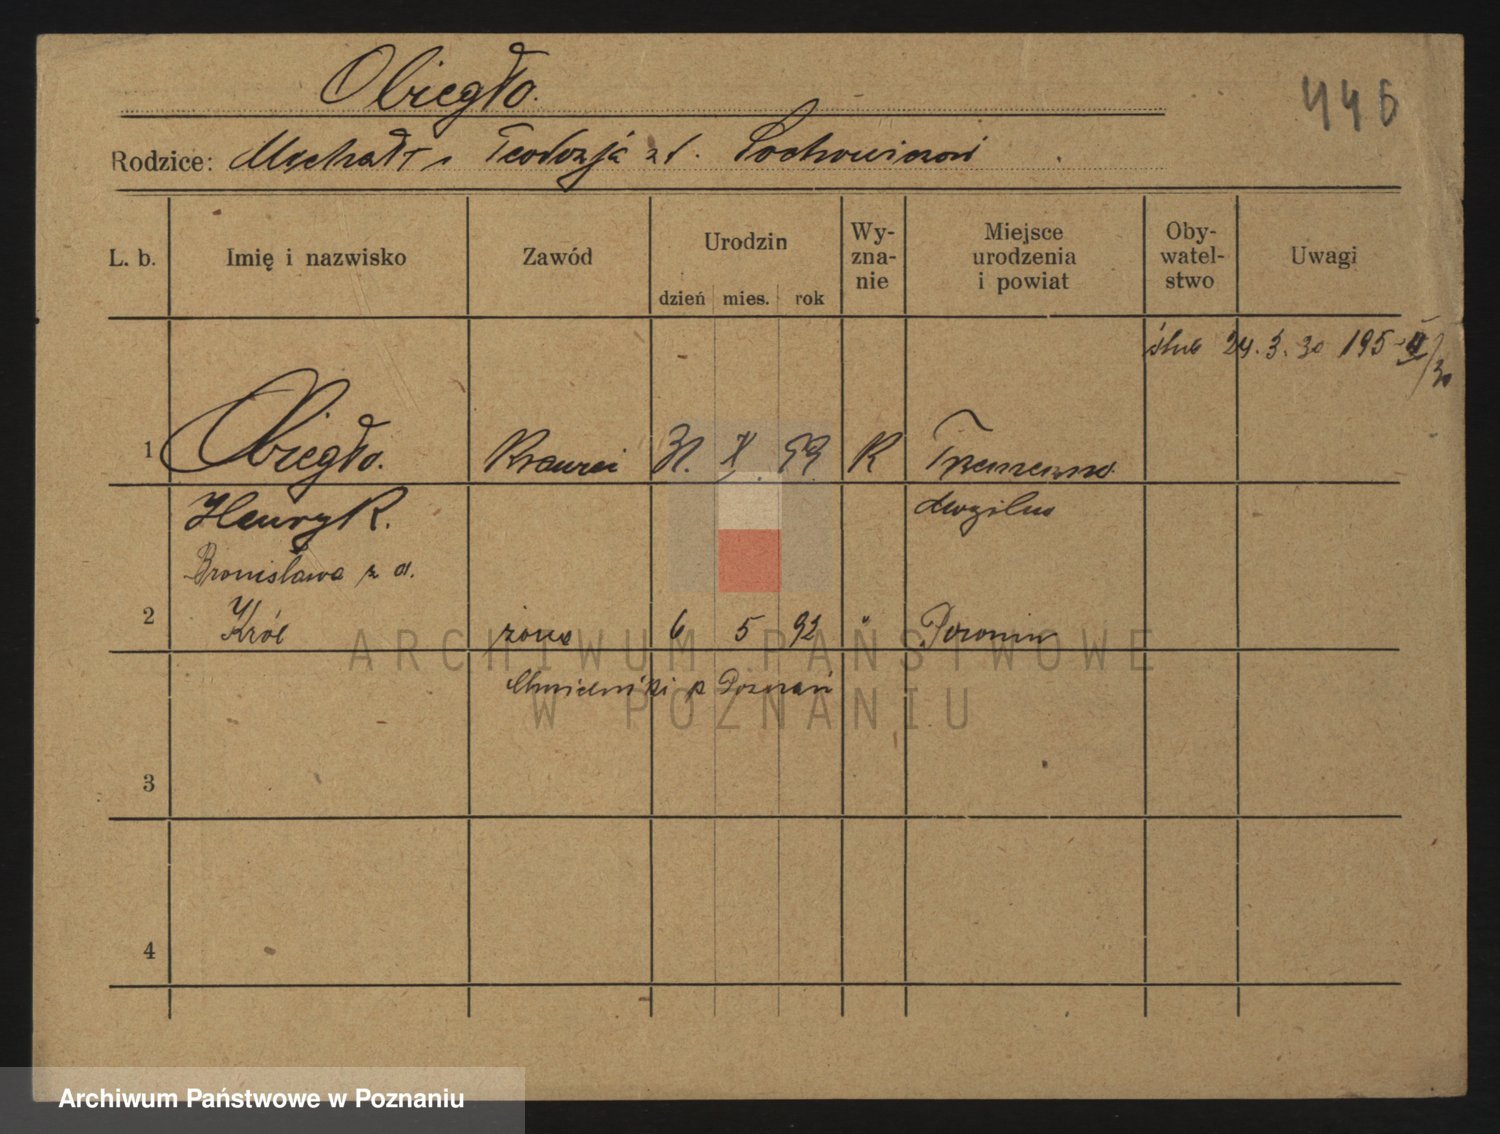 Obiegło.
446
Rodzice: Michał i Teodozja z d.
L. b. Imię i nazwisko Zawód Urodzin dzień mies. rok Wy-zna-nie Miejsce urodzenia i powiat Oby-watel-stwo Uwagi
ślub 24. 3. 30 195
1 Obiegło. Krawiec 31. X. 99. K Trzemeszno
Henryk.
Bronisława z d.
2 Król żona 6 5 92 " Poronin
p Poznań
3
4
ARCHIWUM PAŃSTWOWE
W POZNANIU
Archiwum Państwowe w Poznaniu